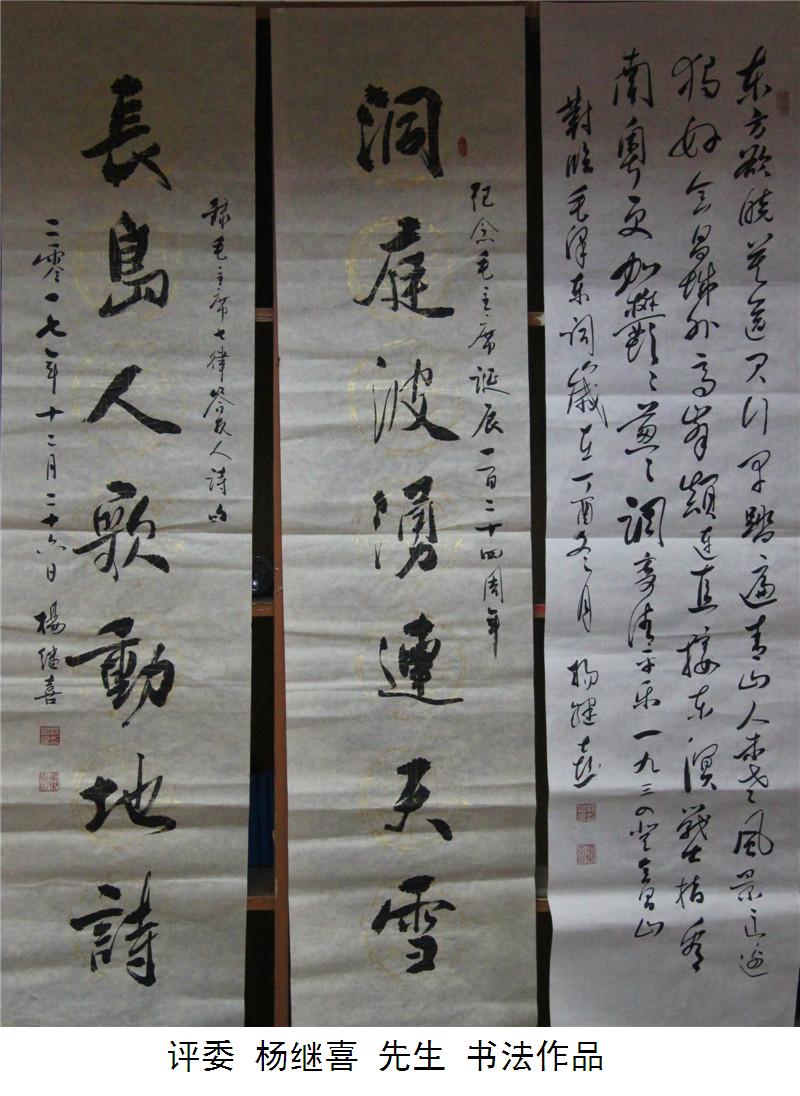 东方欲晓莫道君行早踏遍青山人未老风景这边
独好会昌城外高峰颠连直接东溟战士指看
南粤更加鬱〻葱〻调寄清平乐一九三四登会昌山
對临毛泽东词岁在丁酉冬月 杨继喜
纪念毛主席诞辰一百二十四周年
洞庭波湧連天雪
録毛主席七律答友人詩句
長島人歌動地詩
二零一七年十二月二十六日 楊继喜
评委 杨继喜 先生 书法作品